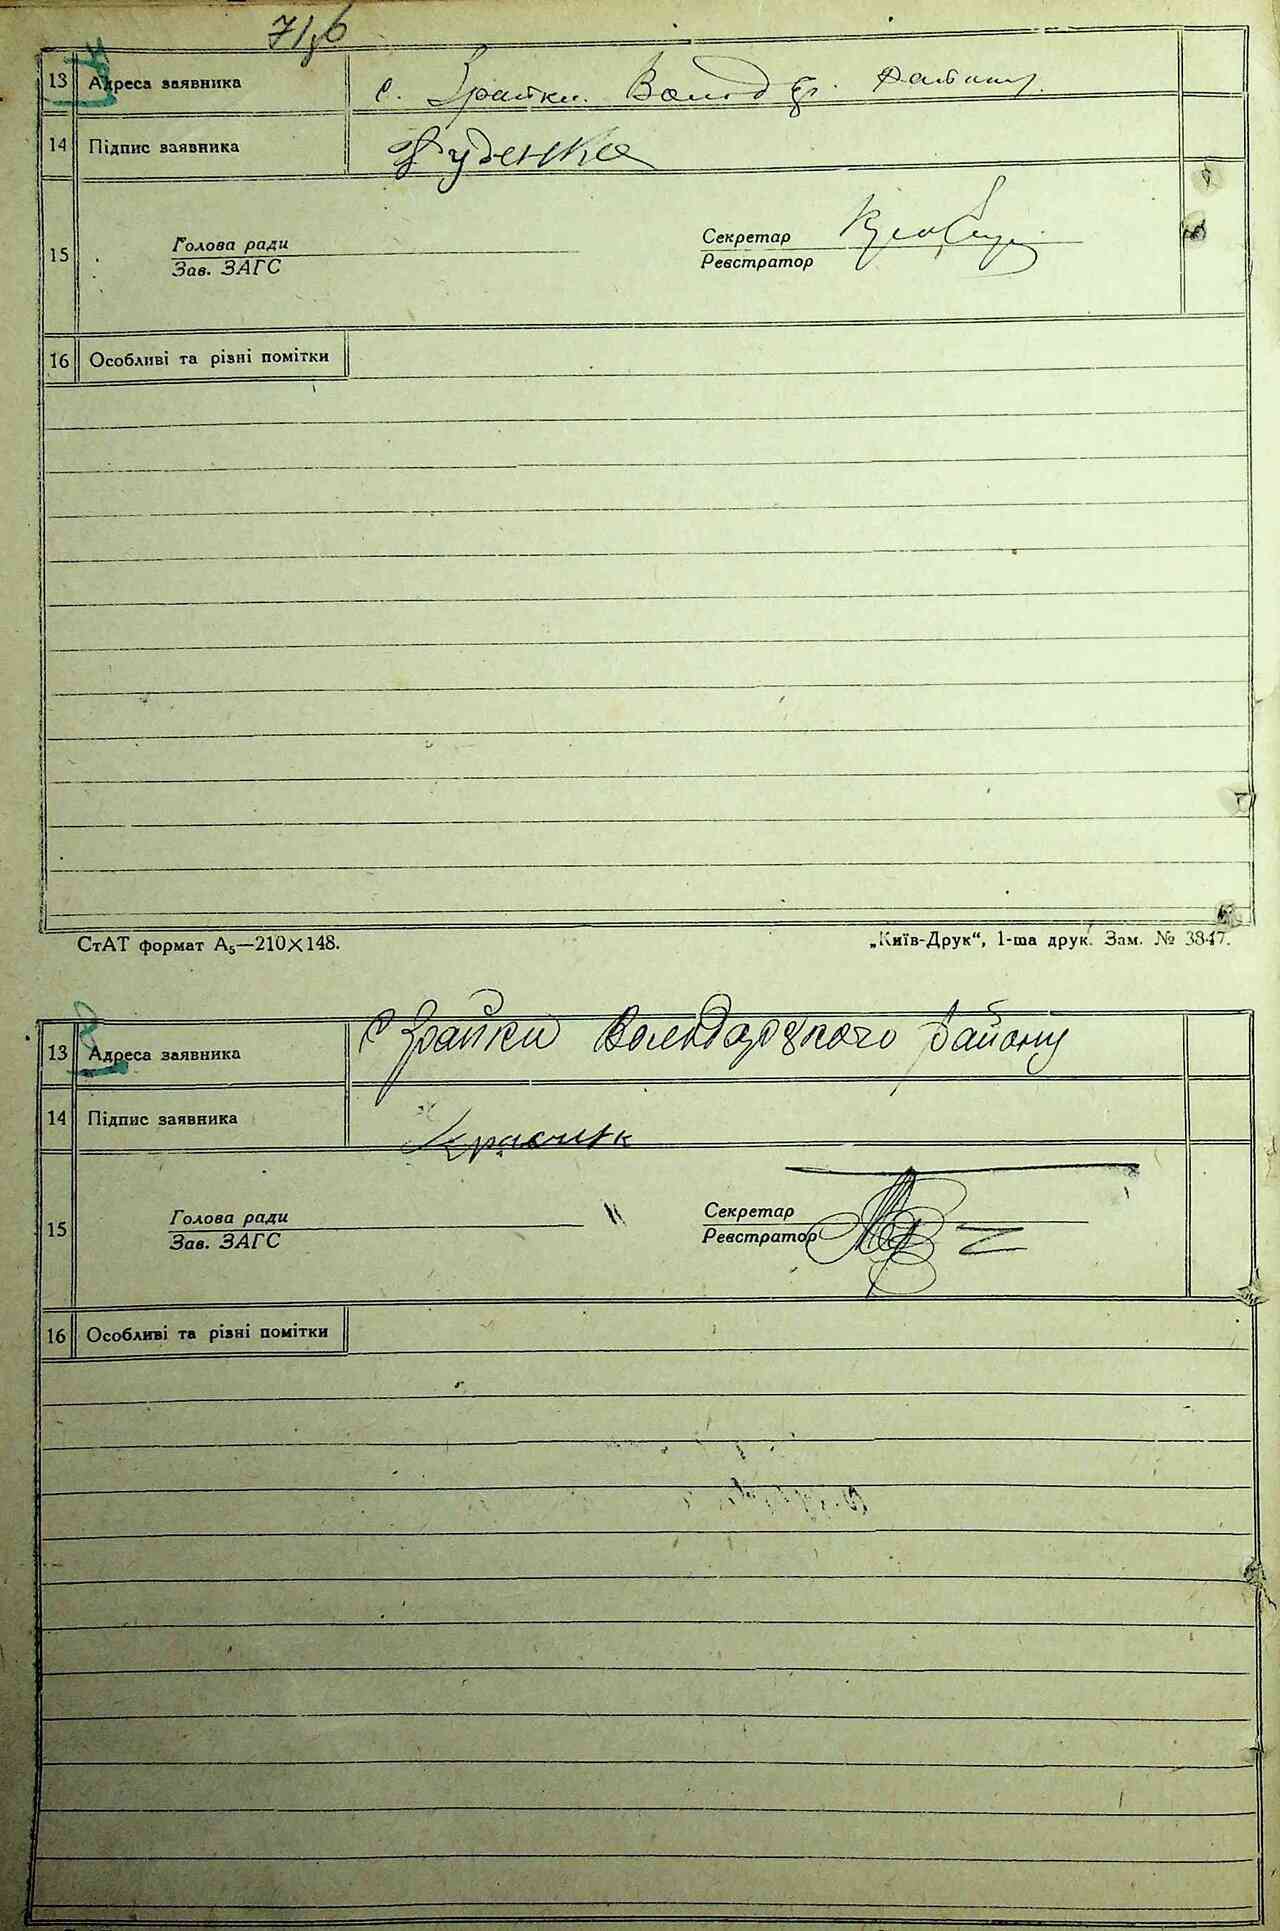 13 Адреса заявника с. Зрайки. Волод. району
14 Підпис заявника Руденко
15 Голова ради Секретар
Зав. ЗАГС Реєстратор
16 Особливі та різні помітки
СтАТ формат А₅—210×148. „Київ-Друк“, 1-ша друк. Зам. № 3847.
13 Адреса заявника с Зрайки Володарзкого району
14 Підпис заявника
15 Голова ради Секретар
Зав. ЗАГС Реєстратор
16 Особливі та різні помітки